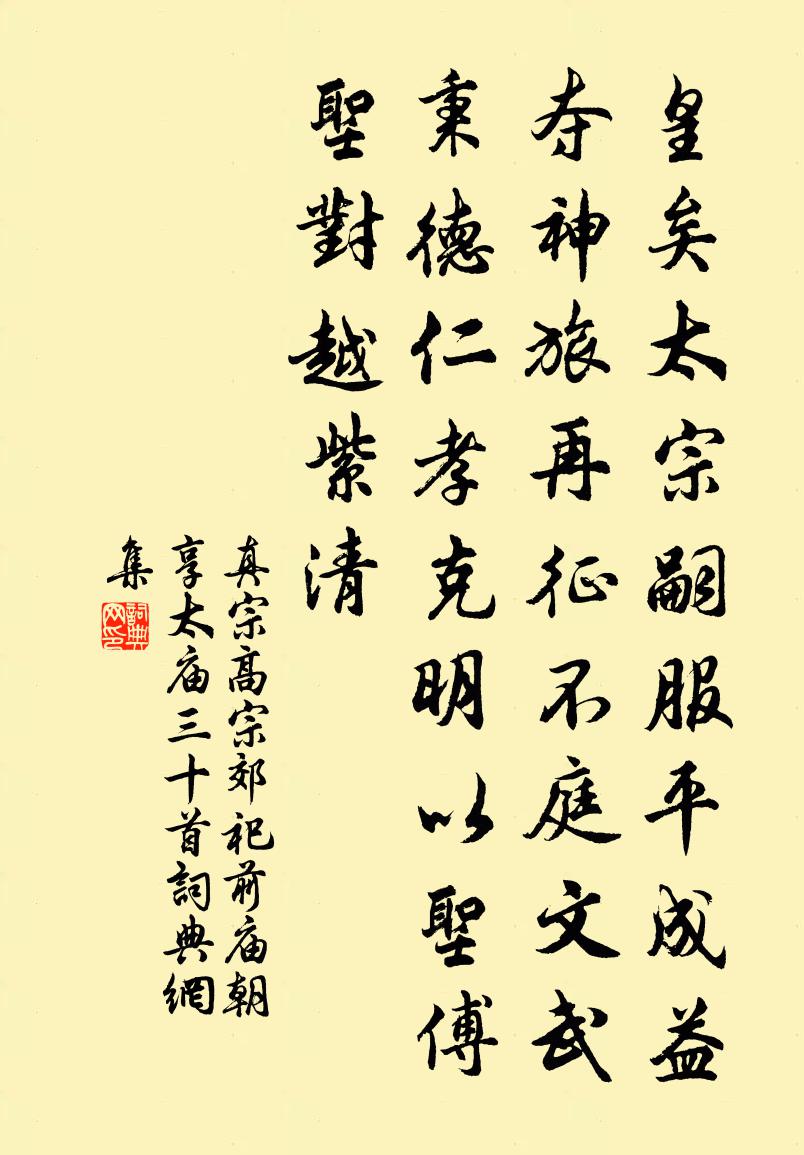 皇矣太宗嗣服平成益
夺神旅再征不庭文武
秉德仁孝克明以聖傅
聖對越紫清
真宗高宗郊祀前庙朝
享太庙三十首詞典網
集
詞典网印